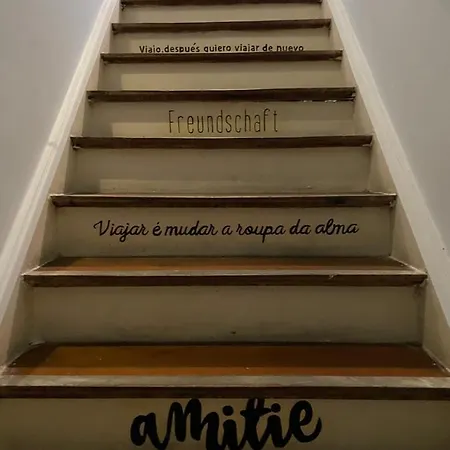 Viajo, después quiero viajar de nuevo
Freundschaft
Viajar é mudar a roupa da alma
amitie